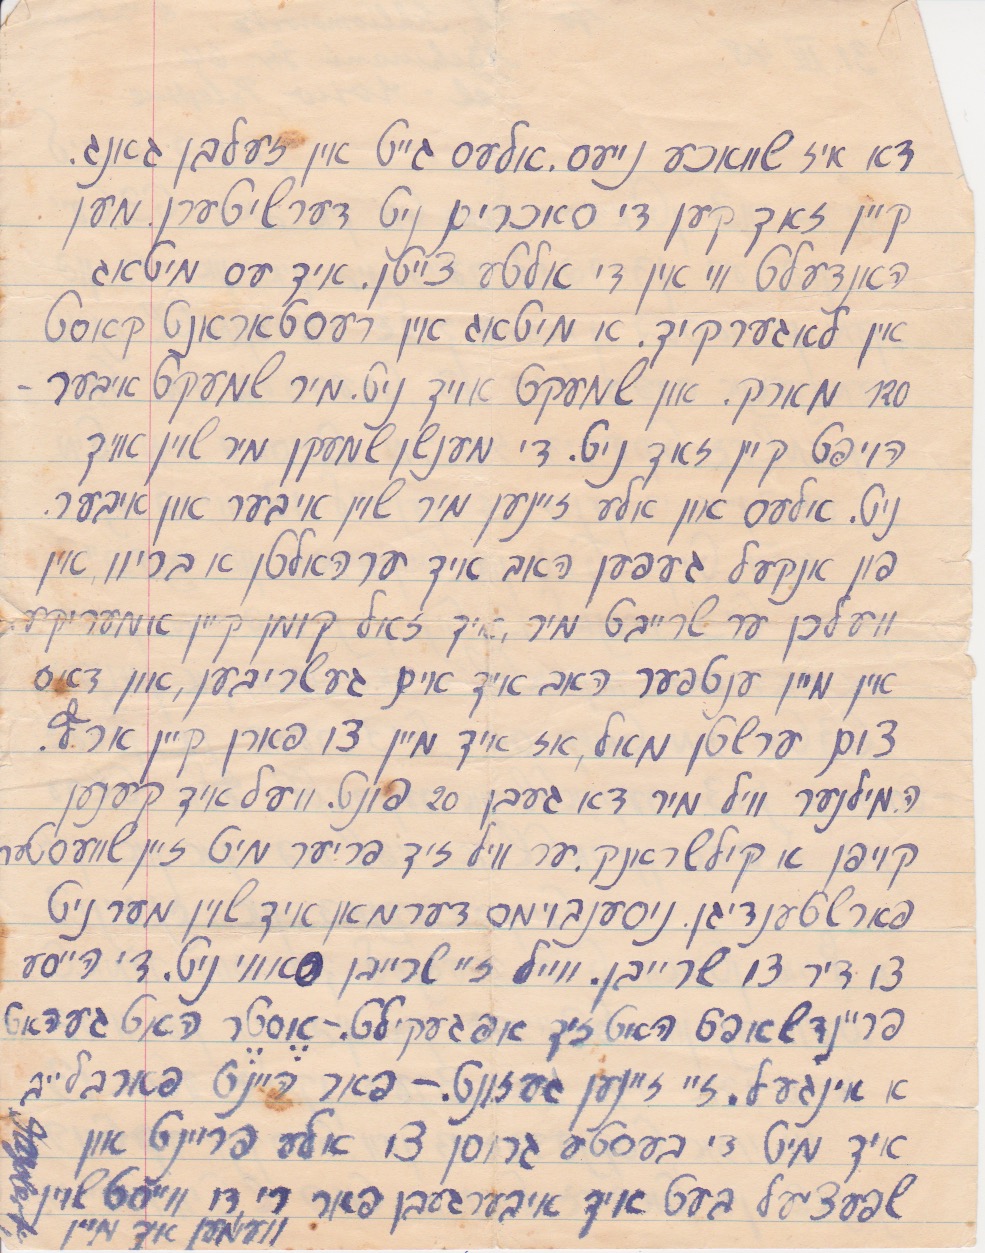 דא איז שוואכע נייעס. אלעס גייט אין זעלבן גאנג.
קיין זאך קען די סוחרים ניט דערשיטערן. מען
האנדעלט ווי אין די אלטע צייטן. איך עס מיטאג
אין לאגערקיך. א מיטאג אין רעסטאראנט קאסט
120 מארק. און שמעקט אויך ניט. מיר שמעקט איבער-
הויפט קיין זאך ניט. די מענשן שמעקן מיר שוין אויך
ניט. אלעס און אלע זיינען מיר שוין איבער און איבער.
פון אנקעל געפען האב איך ערהאלטן א בריוו, אין
וועלכן ער שרייבט מיר, איך זאל קומן קיין אמעריקע.
אין מיין ענטפער האב איך אים געשריבען, און דאס
צום ערשטן מאל, אז איך מיין צו פארן קיין ארץ.
ה. מילנער וויל מיר דא געבן 20 פונט. וועל איך קענען
קויפן א קילשראנק. ער וויל זיך פריער מיט זיין שוועסטער
פארשטענדיגן. ניסענבוימס דערמאן איך שוין מער ניט
צו דיר צו שרייבן. ווייל זיי שרייבן סאווי ניט. די הייסע
פריינדשאפט האט זיך אפגעקילט. – אסטר האט געהאט
א אינגעל. זיי זיינען געזונט. – פאר היינט פארבלייב
איך מיט די בעסטע גרוסן צו אלע פריינט און
שפעציעל בעט איך איבערגעבן פאר די, דו ווייסט שוין
וועמען איך מיין